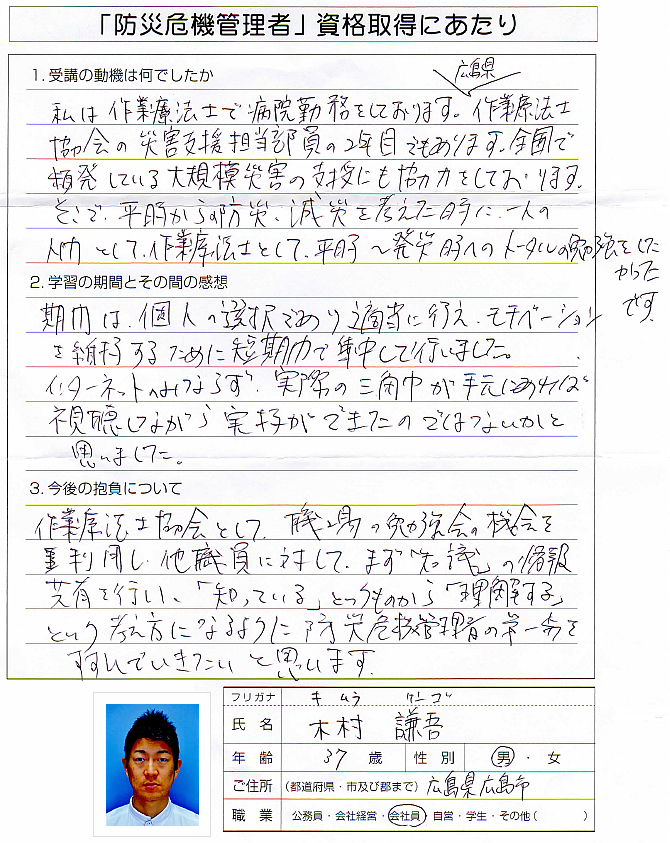 「防災危機管理者」資格取得にあたり
1. 受講の動機は何でしたか
広島県
私は作業療法士で病院勤務をしております。作業療法士
協会の災害支援担当部員の2年目でもあります。全国で
頻発している大規模災害の支援にも協力をしております。
そこで、平時からの防災、減災を考えた時に、一人の
人間として、作業療法士として、平時〜発災時へのトータルの勉強をした
かった
です。
2. 学習の期間とその間の感想
期間は、個人の選択であり適当に行え、モチベーション
を維持するために短期間で集中して行いました。
インターネットのみならず、実際の三角巾が手元にあれば
視聴しながら実技ができたのではないかと
思いました。
3. 今後の抱負について
作業療法士協会として、職場の勉強会の機会を
利用し、他職員に対して、まず「知識」の情報
共有を行い、「知っている」というものから「理解する」
という考え方になるように防災危機管理者の第一歩を
踏んでいきたいと思います。
フリガナ キムラ ケンゴ
氏名 木村 謙吾
年齢 37 歳 性別 男・女
ご住所 (都道府県・市及び郡まで) 広島県広島市
職業 公務員・会社経営・会社員・自営・学生・その他( )